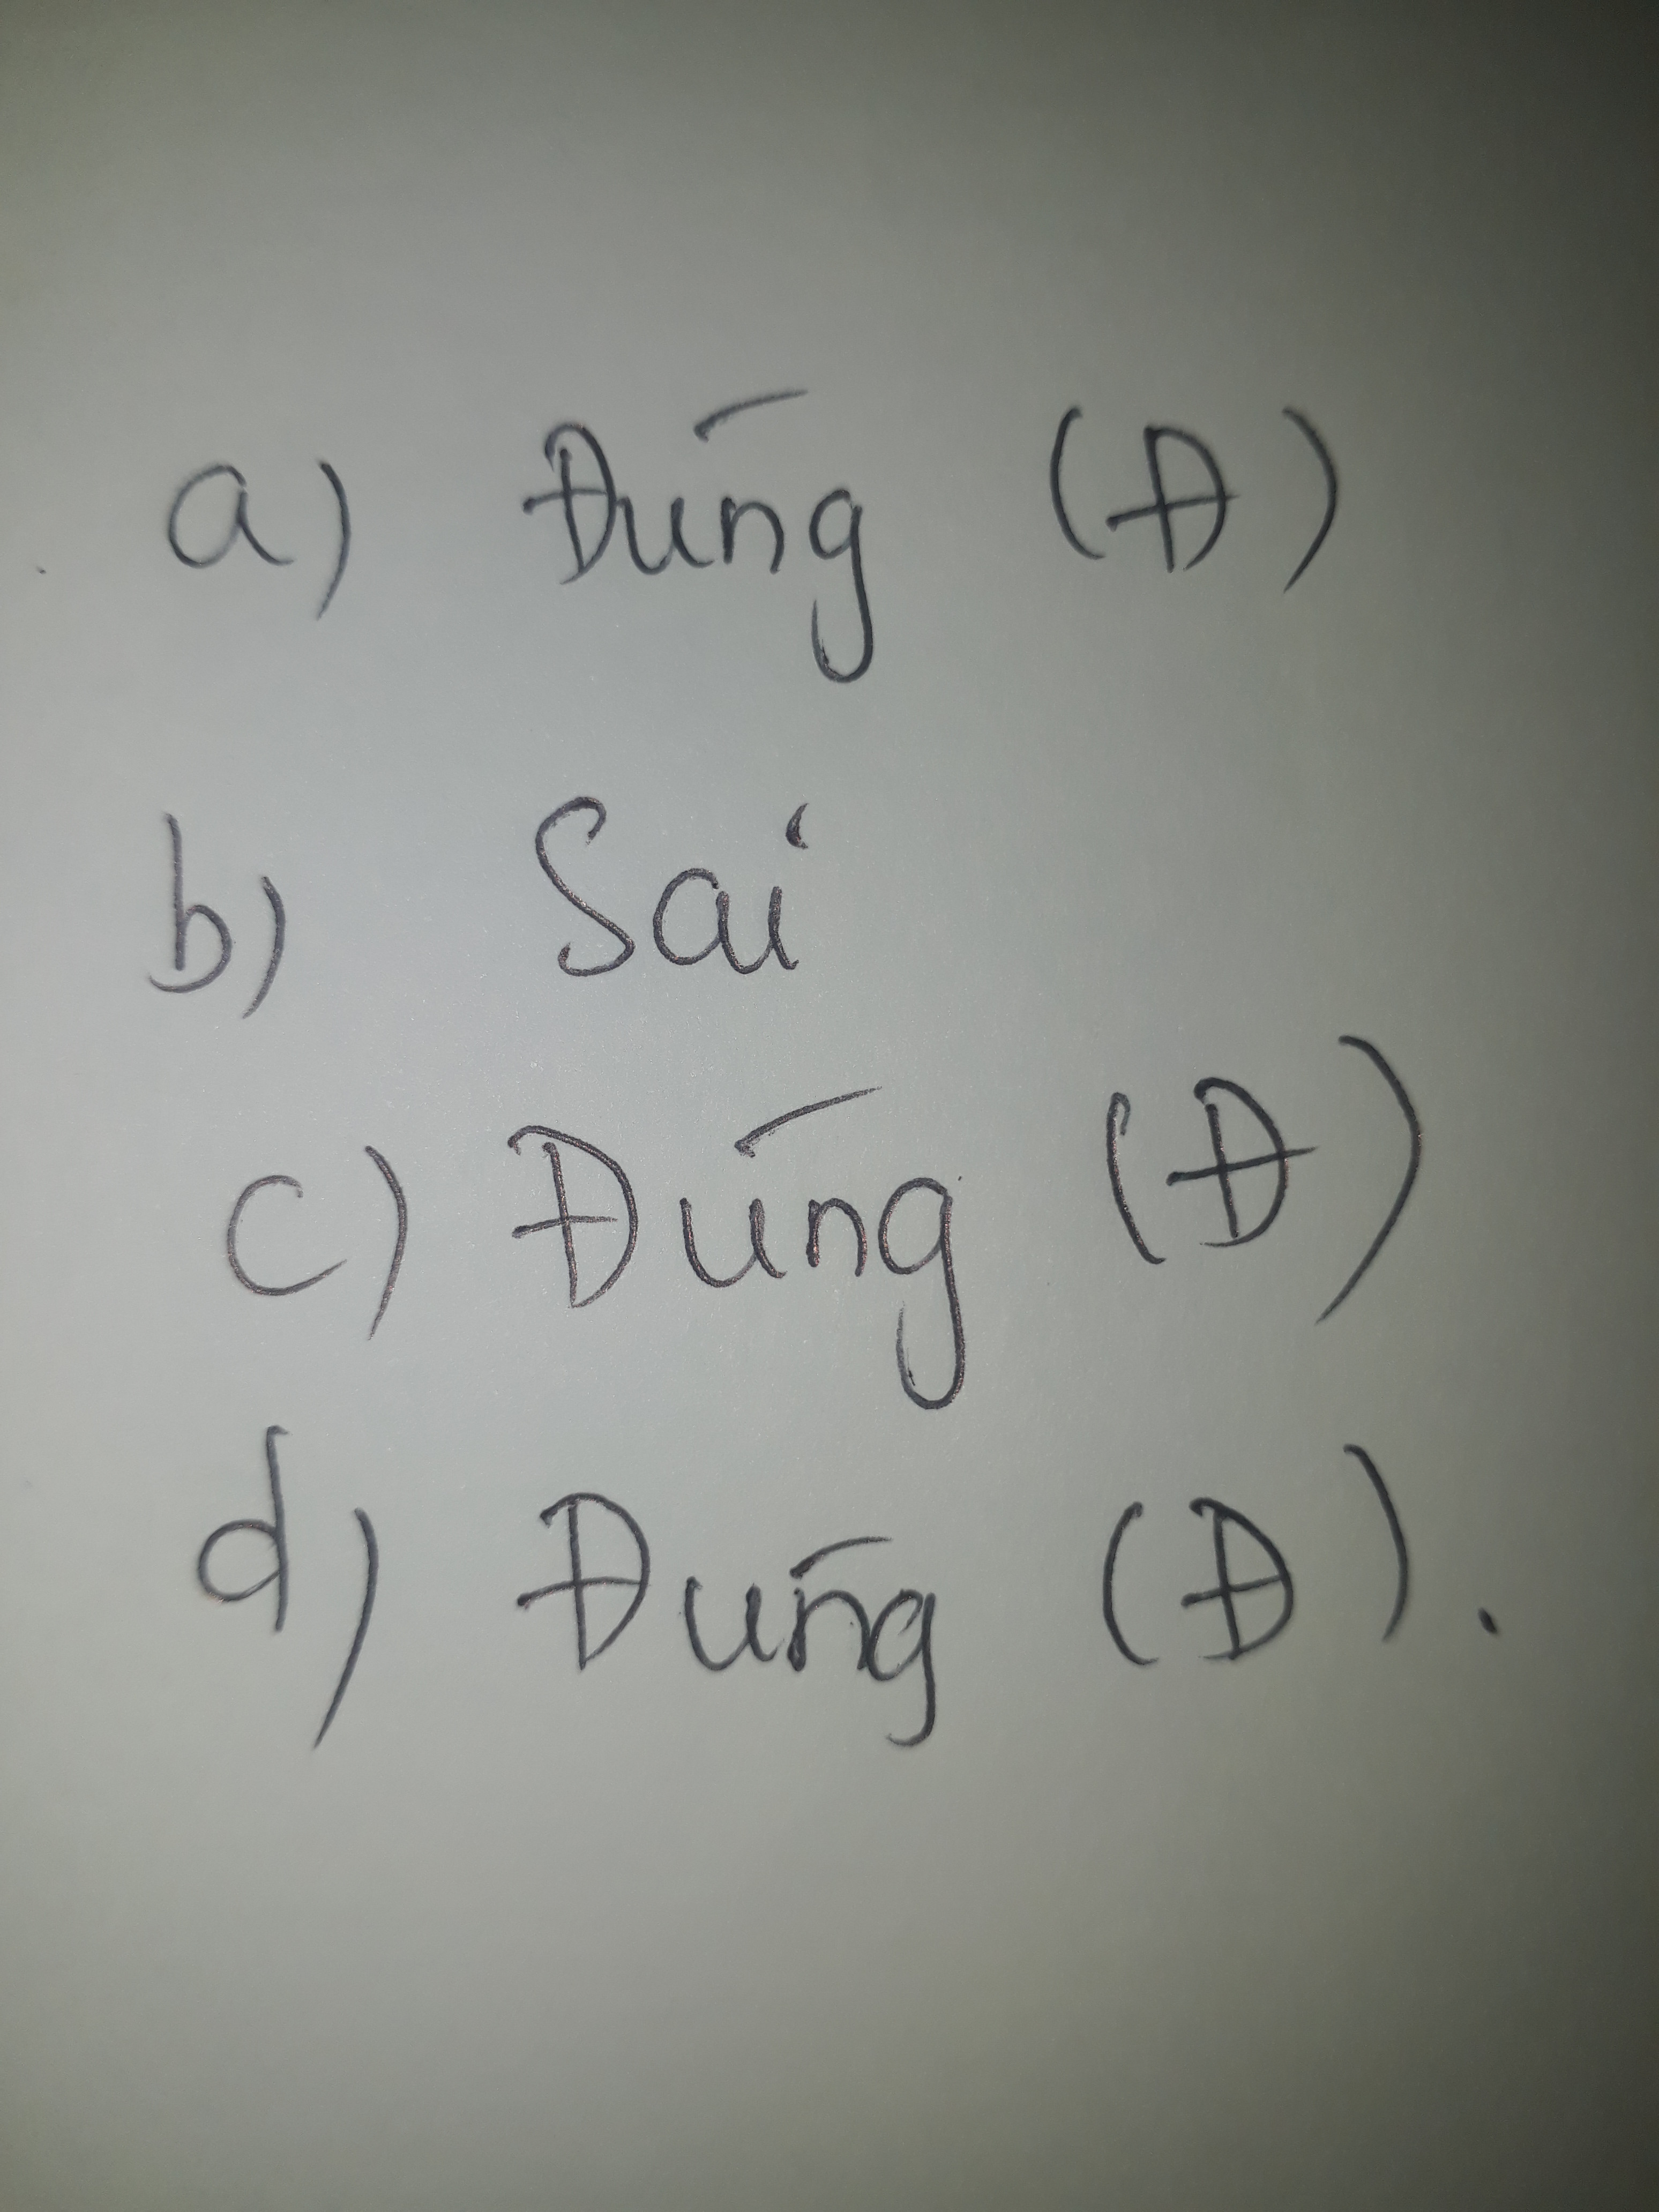 a) Đúng (Đ)
b) Sai
c) Đúng (Đ)
d) Đúng (Đ).